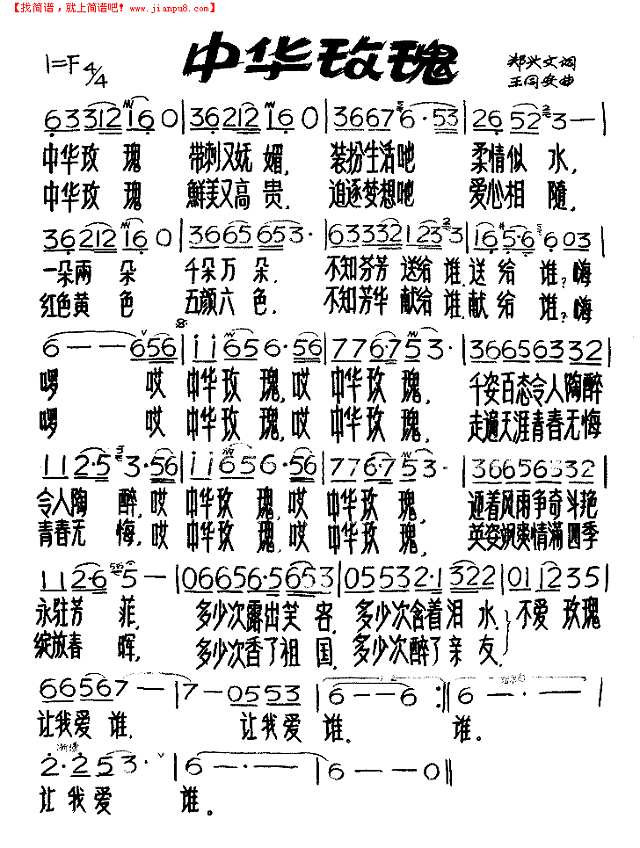 【找简谱，就上简谱吧! www.jianpu8.com】
中华玫瑰
1=F 4/4
郑兴文词
王同安曲
63312 16 0 | 36212 16 0 | 3667 6·53 | 26 52 3— |
中华玫 瑰 带刺又妩 媚, 装扮生活吔 柔情似 水,
中华玫 瑰 鲜美又高 贵, 追逐梦想吧 爱心相 随,
36212 16 0 | 3665 653· | 63332 1233 | 165·6 603 |
一朵兩 朵 千朵万 朵, 不知芬芳 送给 谁,送 给 谁?嗨
红色黄 色 五颜六 色, 不知芳华 献给 谁,献 给 谁?嗨
6—— 656 | 11656·56 | 776·753· | 366563332 |
啰 哎 中华玫 瑰,哎 中华玫 瑰, 千姿百态令人陶醉
啰 哎 中华玫 瑰,哎 中华玫 瑰, 走遍天涯青春无悔
112·53·56 | 11656·56 | 776·753· | 366563332 |
令人陶 醉,哎 中华玫 瑰,哎 中华玫 瑰, 迎着风雨争奇斗艳
青春无 悔,哎 中华玫 瑰,哎 中华玫 瑰, 英姿飒爽情滿四季
112·6 5— | 06656·5653 | 05532·1322 | 011235 |
永驻芳 菲, 多少次露出笑 容, 多少次含着泪 水, 不爱 玫瑰
绽放春 晖, 多少次香了祖 国, 多少次醉了亲 友,
66567— | 7—0553 | 6——6 :‖ 6—— |
让我爱 谁, 让我爱 谁。 谁。
渐慢
2·253· | 6——— | 6——0 ‖
让 我爱 谁。